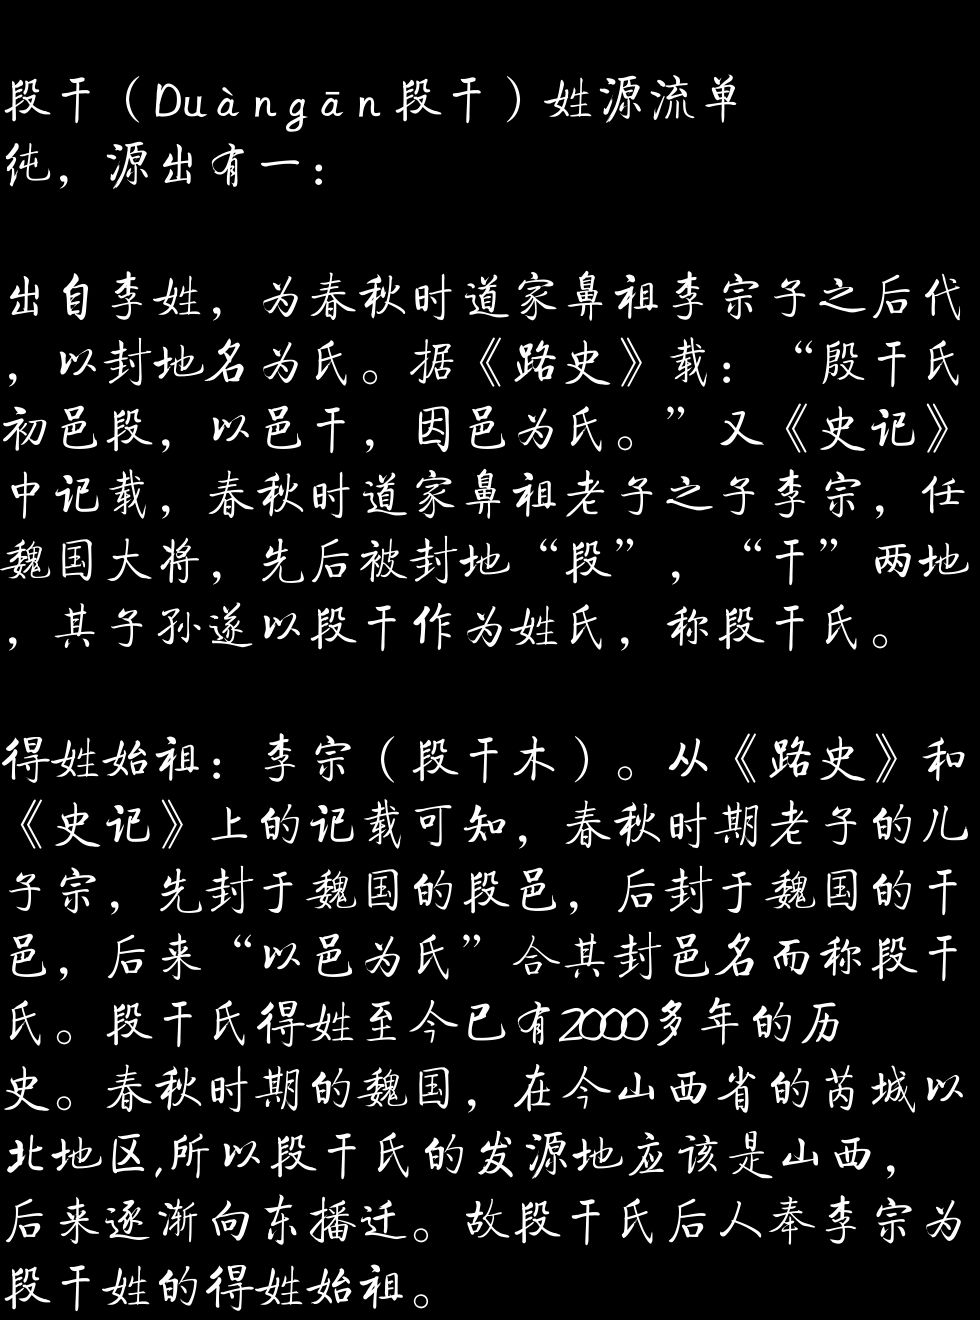 段干（Duàngān段干）姓源流单
纯，源出有一：
出自李姓，为春秋时道家鼻祖李宗子之后代
，以封地名为氏。据《路史》载：“殷干氏
初邑段，以邑干，因邑为氏。”又《史记》
中记载，春秋时道家鼻祖老子之子李宗，任
魏国大将，先后被封地“段”，“干”两地
，其子孙遂以段干作为姓氏，称段干氏。
得姓始祖：李宗（段干木）。从《路史》和
《史记》上的记载可知，春秋时期老子的儿
子宗，先封于魏国的段邑，后封于魏国的干
邑，后来“以邑为氏”合其封邑名而称段干
氏。段干氏得姓至今已有2000多年的历
史。春秋时期的魏国，在今山西省的芮城以
北地区,所以段干氏的发源地应该是山西，
后来逐渐向东播迁。故段干氏后人奉李宗为
段干姓的得姓始祖。